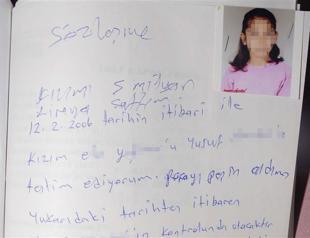 Sözleşme
Kızımı 5 milyar
Liraya sattım
12.2.2006 tarihin itibari ile
Kızım e y 'u Yusuf
teslim ediyorum. parayı peşin aldım
Yukarıdaki tarihten itibaren
in kontrolunda olacaktır